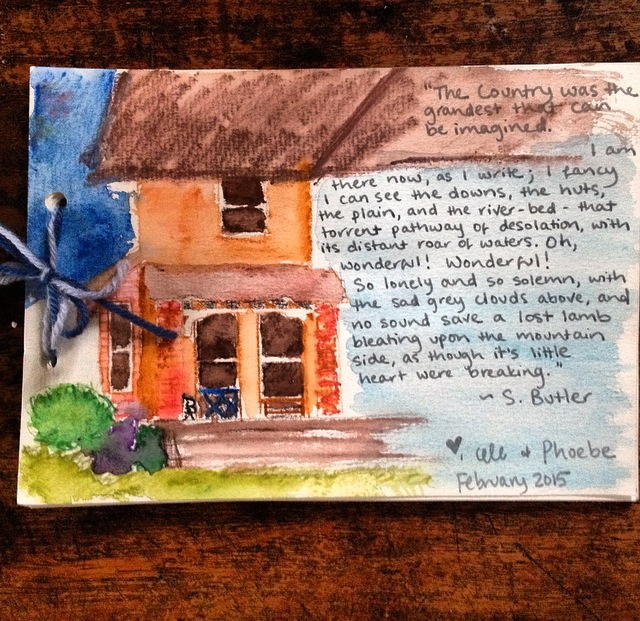 "The Country was the
grandest that can
be imagined.
I am
there now, as I write; I fancy
I can see the downs, the huts,
the plain, and the river-bed - that
torrent pathway of desolation, with
its distant roar of waters. Oh,
wonderful! Wonderful!
So lonely and so solemn, with
the sad grey clouds above, and
no sound save a lost lamb
bleating upon the mountain
side, as though it's little
heart were breaking."
~ S. Butler
♥, & Phoebe
February 2015